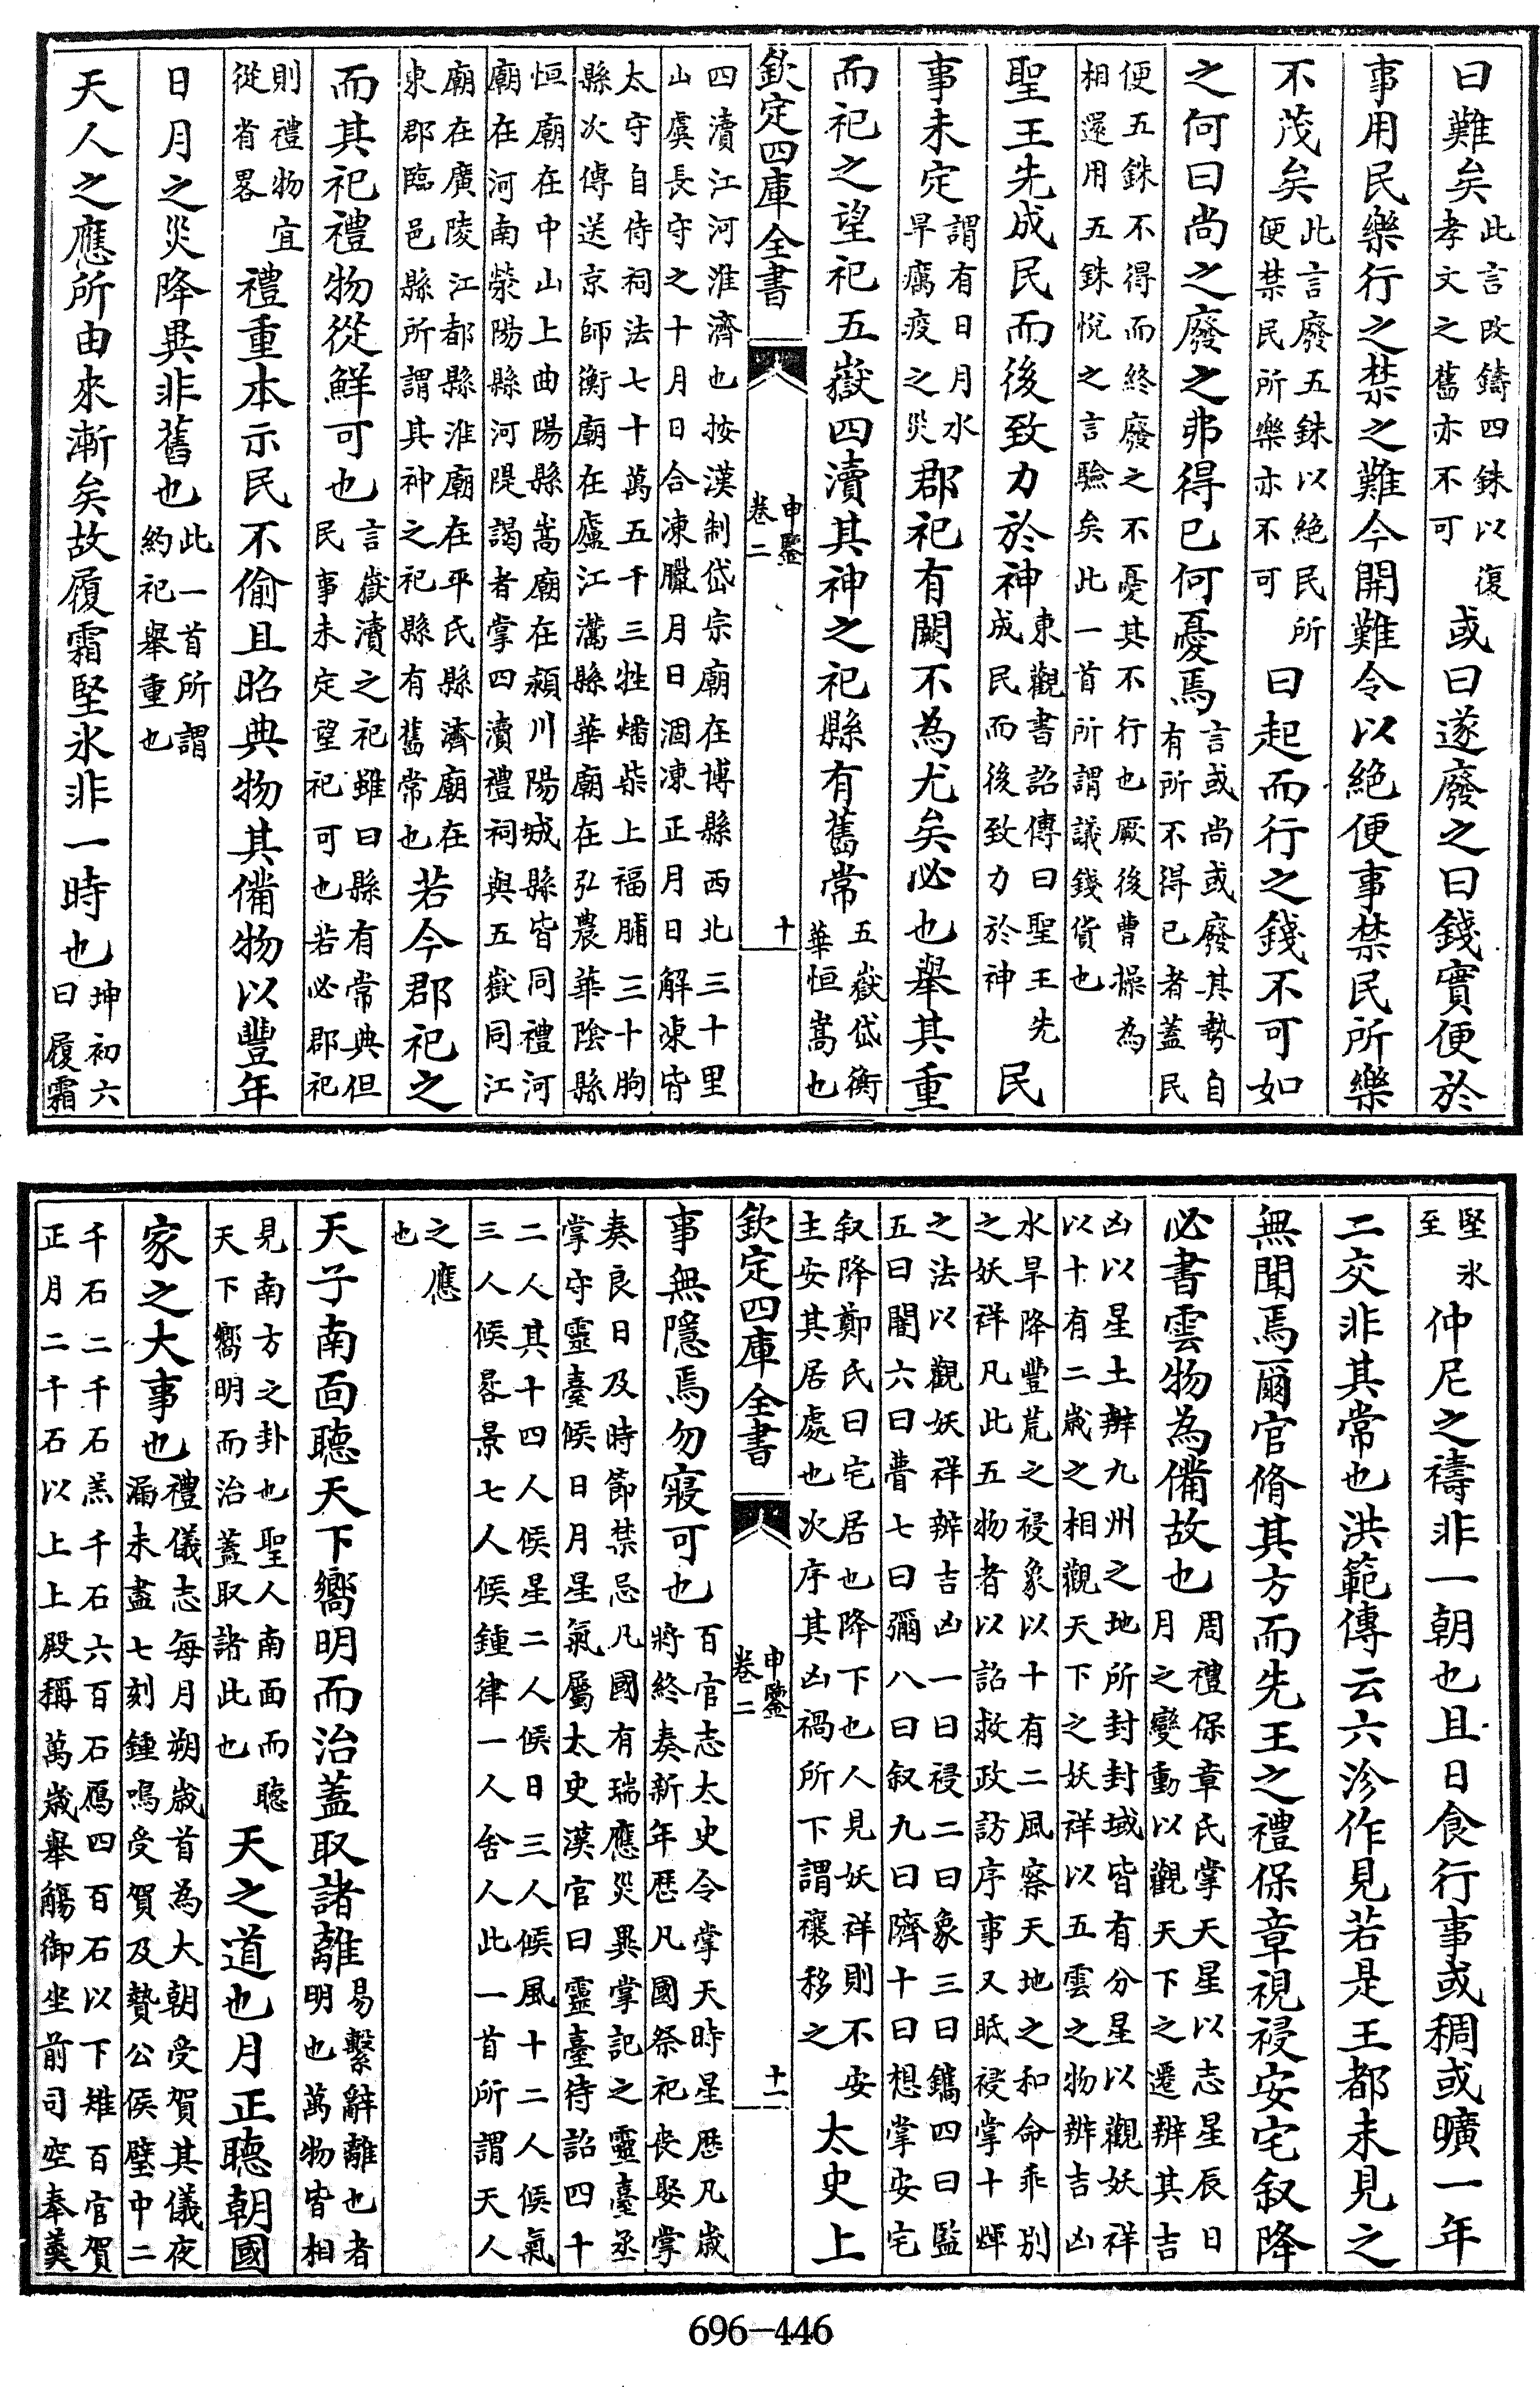 曰難矣此言改鑄四銖以復孝文之舊亦不可或曰遂廢之曰錢實便於
事用民樂行之禁之難今開難令以絕便事禁民所樂
不茂矣此言廢五銖以絕民所便禁民所樂亦不可曰起而行之錢不可如
之何曰尚之廢之弗得已何憂焉言或尚或廢其勢自有所不得已者蓋民
便五銖不得而終廢之不憂其不行也厥後曹操為相還用五銖悅之言驗矣此一首所謂議錢貨也
聖王先成民而後致力於神東觀書詔傳曰聖王先成民而後致力於神民
事未定謂有日月水旱癘疫之災郡祀有闕不為尤矣必也舉其重
而祀之望祀五嶽四瀆其神之祀縣有舊常五嶽岱衡華恒嵩也
欽定四庫全書 申鑒 卷二 十
四瀆江河淮濟也按漢制岱宗廟在博縣西北三十里山虞長守之十月日合凍臘月日涸凍正月日解凍皆
太守自侍祠法七十萬五千三牲燔柴上福脯三十朐縣次傳送京師衡廟在廬江灊縣華廟在弘農華陰縣
恒廟在中山上曲陽縣嵩廟在潁川陽城縣皆同禮河廟在河南滎陽縣河隄謁者掌四瀆禮祠與五嶽同江
廟在廣陵江都縣淮廟在平氏縣濟廟在東郡臨邑縣所謂其神之祀縣有舊常也若今郡祀之
而其祀禮物從鮮可也言嶽瀆之祀雖曰縣有常典但民事未定望祀可也若必郡祀
則禮物宜從省畧禮重本示民不偷且昭典物其備物以豐年
日月之災降異非舊也此一首所謂約祀舉重也
天人之應所由來漸矣故履霜堅氷非一時也坤初六曰履霜
堅氷至仲尼之禱非一朝也且日食行事或稠或曠一年
二交非其常也洪範傳云六沴作見若是王都未見之
無聞焉爾官脩其方而先王之禮保章視祲安宅叙降
必書雲物為備故也周禮保章氏掌天星以志星辰日月之變動以觀天下之遷辨其吉
凶以星土辨九州之地所封封域皆有分星以觀妖祥以十有二歲之相觀天下之妖祥以五雲之物辨吉凶
水旱降豐荒之祲象以十有二風察天地之和命乖别之妖祥凡此五物者以詔救政訪序事又眡祲掌十煇
之法以觀妖祥辨吉凶一曰祲二曰象三曰鑴四曰監五曰闇六曰瞢七曰彌八曰叙九曰隮十曰想掌安宅
叙降鄭氏曰宅居也降下也人見妖祥則不安主安其居處也次序其凶禍所下謂禳移之太史上
欽定四庫全書 申鑒 卷二 十一
事無隱焉勿寢可也百官志太史令掌天時星歷凡歲將終奏新年歷凡國祭祀喪娶掌
奏良日及時節禁忌凡國有瑞應災異掌記之靈臺丞掌守靈臺候日月星氣屬太史漢官曰靈臺待詔四十
二人其十四人候星二人候日三人候風十二人候氣三人候晷景七人候鍾律一人舍人此一首所謂天人
之應也
天子南面聽天下嚮明而治蓋取諸離易繫辭離也者明也萬物皆相
見南方之卦也聖人南面而聽天下嚮明而治蓋取諸此也天之道也月正聽朝國
家之大事也禮儀志每月朔歲首為大朝受賀其儀夜漏未盡七刻鍾鳴受賀及贄公侯璧中二
千石二千石羔千石六百石鴈四百石以下雉百官賀正月二千石以上上殿稱萬歲舉觴御坐前司空奉羹
696-446